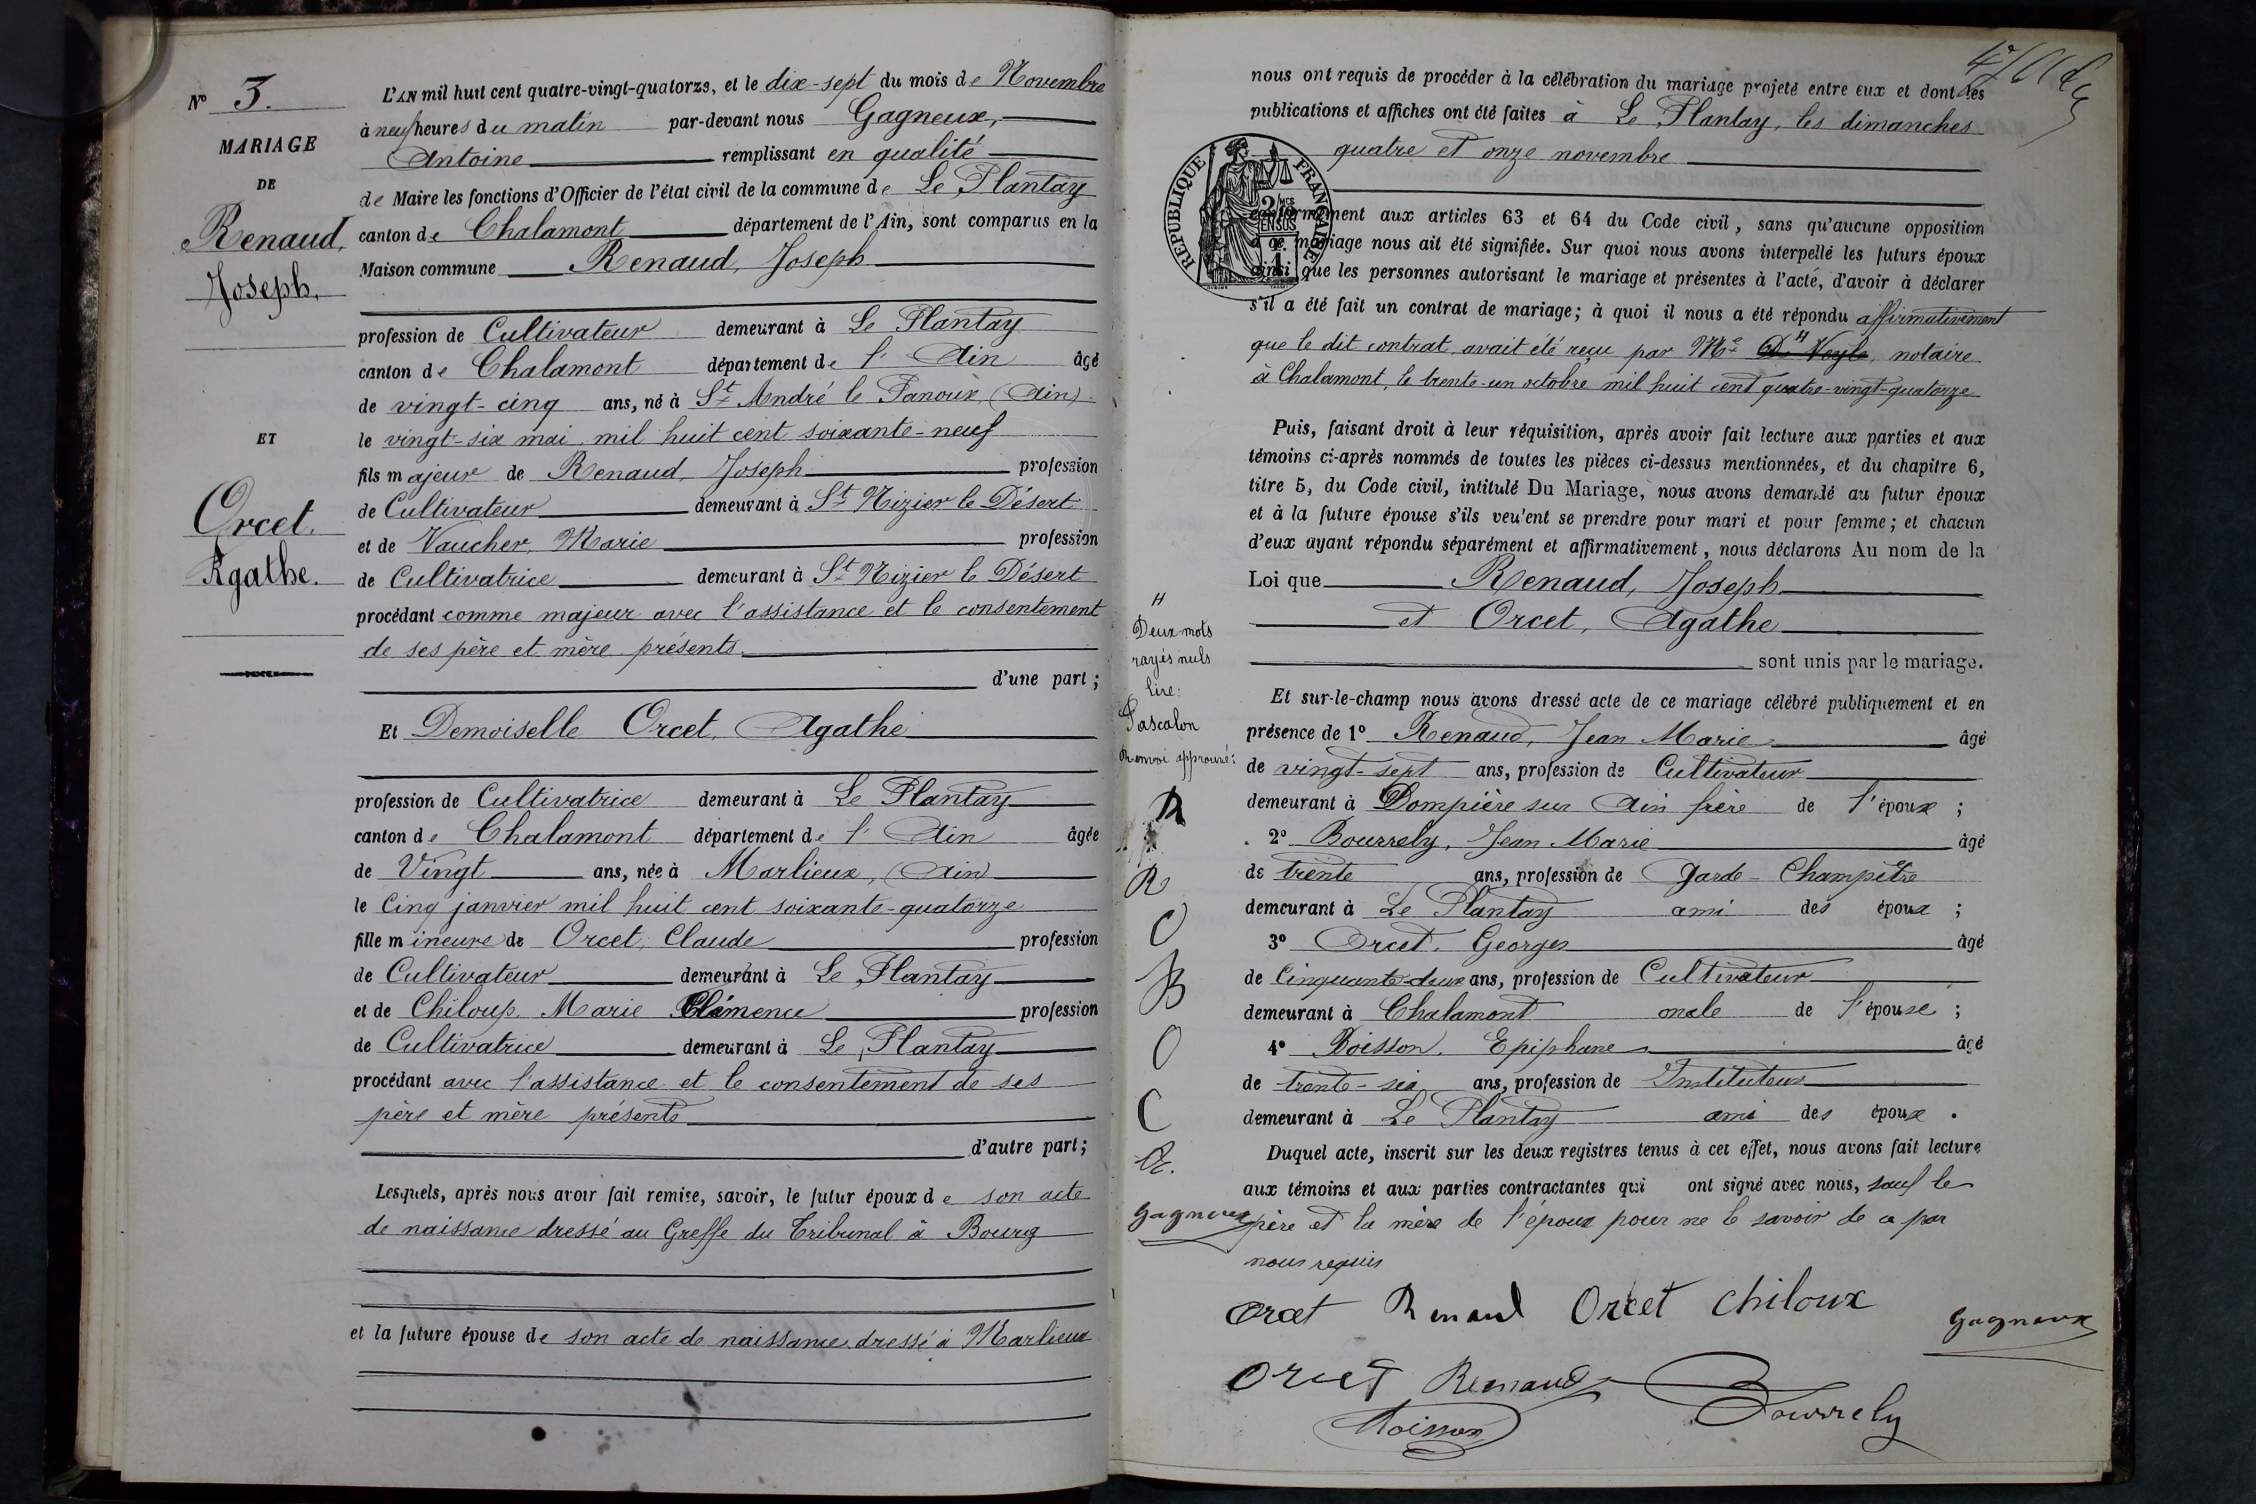 N° 3.
MARIAGE
DE
Renaud,
Joseph.
ET
Orcet.
Agathe.
L'AN mil huit cent quatre-vingt-quatorze, et le dix-sept du mois de Novembre
à neuf heures du matin par-devant nous Gagneux,
Antoine remplissant en qualité
de Maire les fonctions d'Officier de l'état civil de la commune de Le Plantay
canton de Chalamont département de l'Ain, sont comparus en la
Maison commune Renaud, Joseph
profession de Cultivateur demeurant à Le Plantay
canton de Chalamont département de l' Ain âgé
de vingt-cinq ans, né à St André le Panoux, (Ain)
le vingt-six mai mil huit cent soixante-neuf
fils majeur de Renaud, Joseph profession
de Cultivateur demeurant à St Nizier le Désert
et de Vaucher, Marie profession
de Cultivatrice demeurant à St Nizier le Désert
procédant comme majeur avec l'assistance et le consentement
de ses père et mère présents
d'une part ;
Et Demoiselle Orcet, Agathe
profession de Cultivatrice demeurant à Le Plantay
canton de Chalamont département de l' Ain âgée
de Vingt ans, née à Marlieux, (Ain)
le Cinq janvier mil huit cent soixante-quatorze
fille mineure de Orcet, Claude profession
de Cultivateur demeurant à Le Plantay
et de Chiloup, Marie Clémence profession
de Cultivatrice demeurant à Le Plantay
procédant avec l'assistance et le consentement de ses
père et mère présents
d'autre part ;
Lesquels, après nous avoir fait remise, savoir, le futur époux de son acte
de naissance dressé au Greffe du Tribunal à Bourg
et la future épouse de son acte de naissance dressé à Marlieux
nous ont requis de procéder à la célébration du mariage projeté entre eux et dont les
publications et affiches ont été faites à Le Plantay, les dimanches
quatre et onze novembre
RÉPUBLIQUE FRANÇAISE
conformément aux articles 63 et 64 du Code civil, sans qu'aucune opposition
à ce mariage nous ait été signifiée. Sur quoi nous avons interpellé les futurs époux
ainsi que les personnes autorisant le mariage et présentes à l'acte, d'avoir à déclarer
s'il a été fait un contrat de mariage ; à quoi il nous a été répondu affirmativement
que le dit contrat avait été reçu par Me De Veyle, notaire
à Chalamont, le trente-un octobre mil huit cent quatre-vingt-quatorze
Puis, faisant droit à leur réquisition, après avoir fait lecture aux parties et aux
témoins ci-après nommés de toutes les pièces ci-dessus mentionnées, et du chapitre 6,
titre 5, du Code civil, intitulé Du Mariage, nous avons demandé au futur époux
et à la future épouse s'ils veulent se prendre pour mari et pour femme ; et chacun
d'eux ayant répondu séparément et affirmativement, nous déclarons Au nom de la
Loi que Renaud, Joseph
et Orcet, Agathe
sont unis par le mariage.
Et sur-le-champ nous avons dressé acte de ce mariage célébré publiquement et en
présence de 1° Renaud, Jean Marie âgé
de vingt-sept ans, profession de Cultivateur
demeurant à Dompière sur Ain frère de l'époux ;
2° Bourrely, Jean Marie âgé
de trente ans, profession de Garde-Champêtre
demeurant à Le Plantay ami des époux ;
3° Orcet, Georges âgé
de Cinquante-deux ans, profession de Cultivateur
demeurant à Chalamont oncle de l'épouse ;
4° Poisson, Epiphane âgé
de trente-six ans, profession de Instituteur
demeurant à Le Plantay ami des époux.
Duquel acte, inscrit sur les deux registres tenus à cet effet, nous avons fait lecture
aux témoins et aux parties contractantes qui ont signé avec nous, sauf le
père et la mère de l'époux pour ne le savoir de ce par
nous requis
Deux mots
rayés nuls
lire:
Pascalon
Renvoi approuvé:
R
R
O
B
O
C
Gagneux
Orcet Renaud Orcet Chiloux
Gagneux
Orcet Renaud Bourrely
Poisson